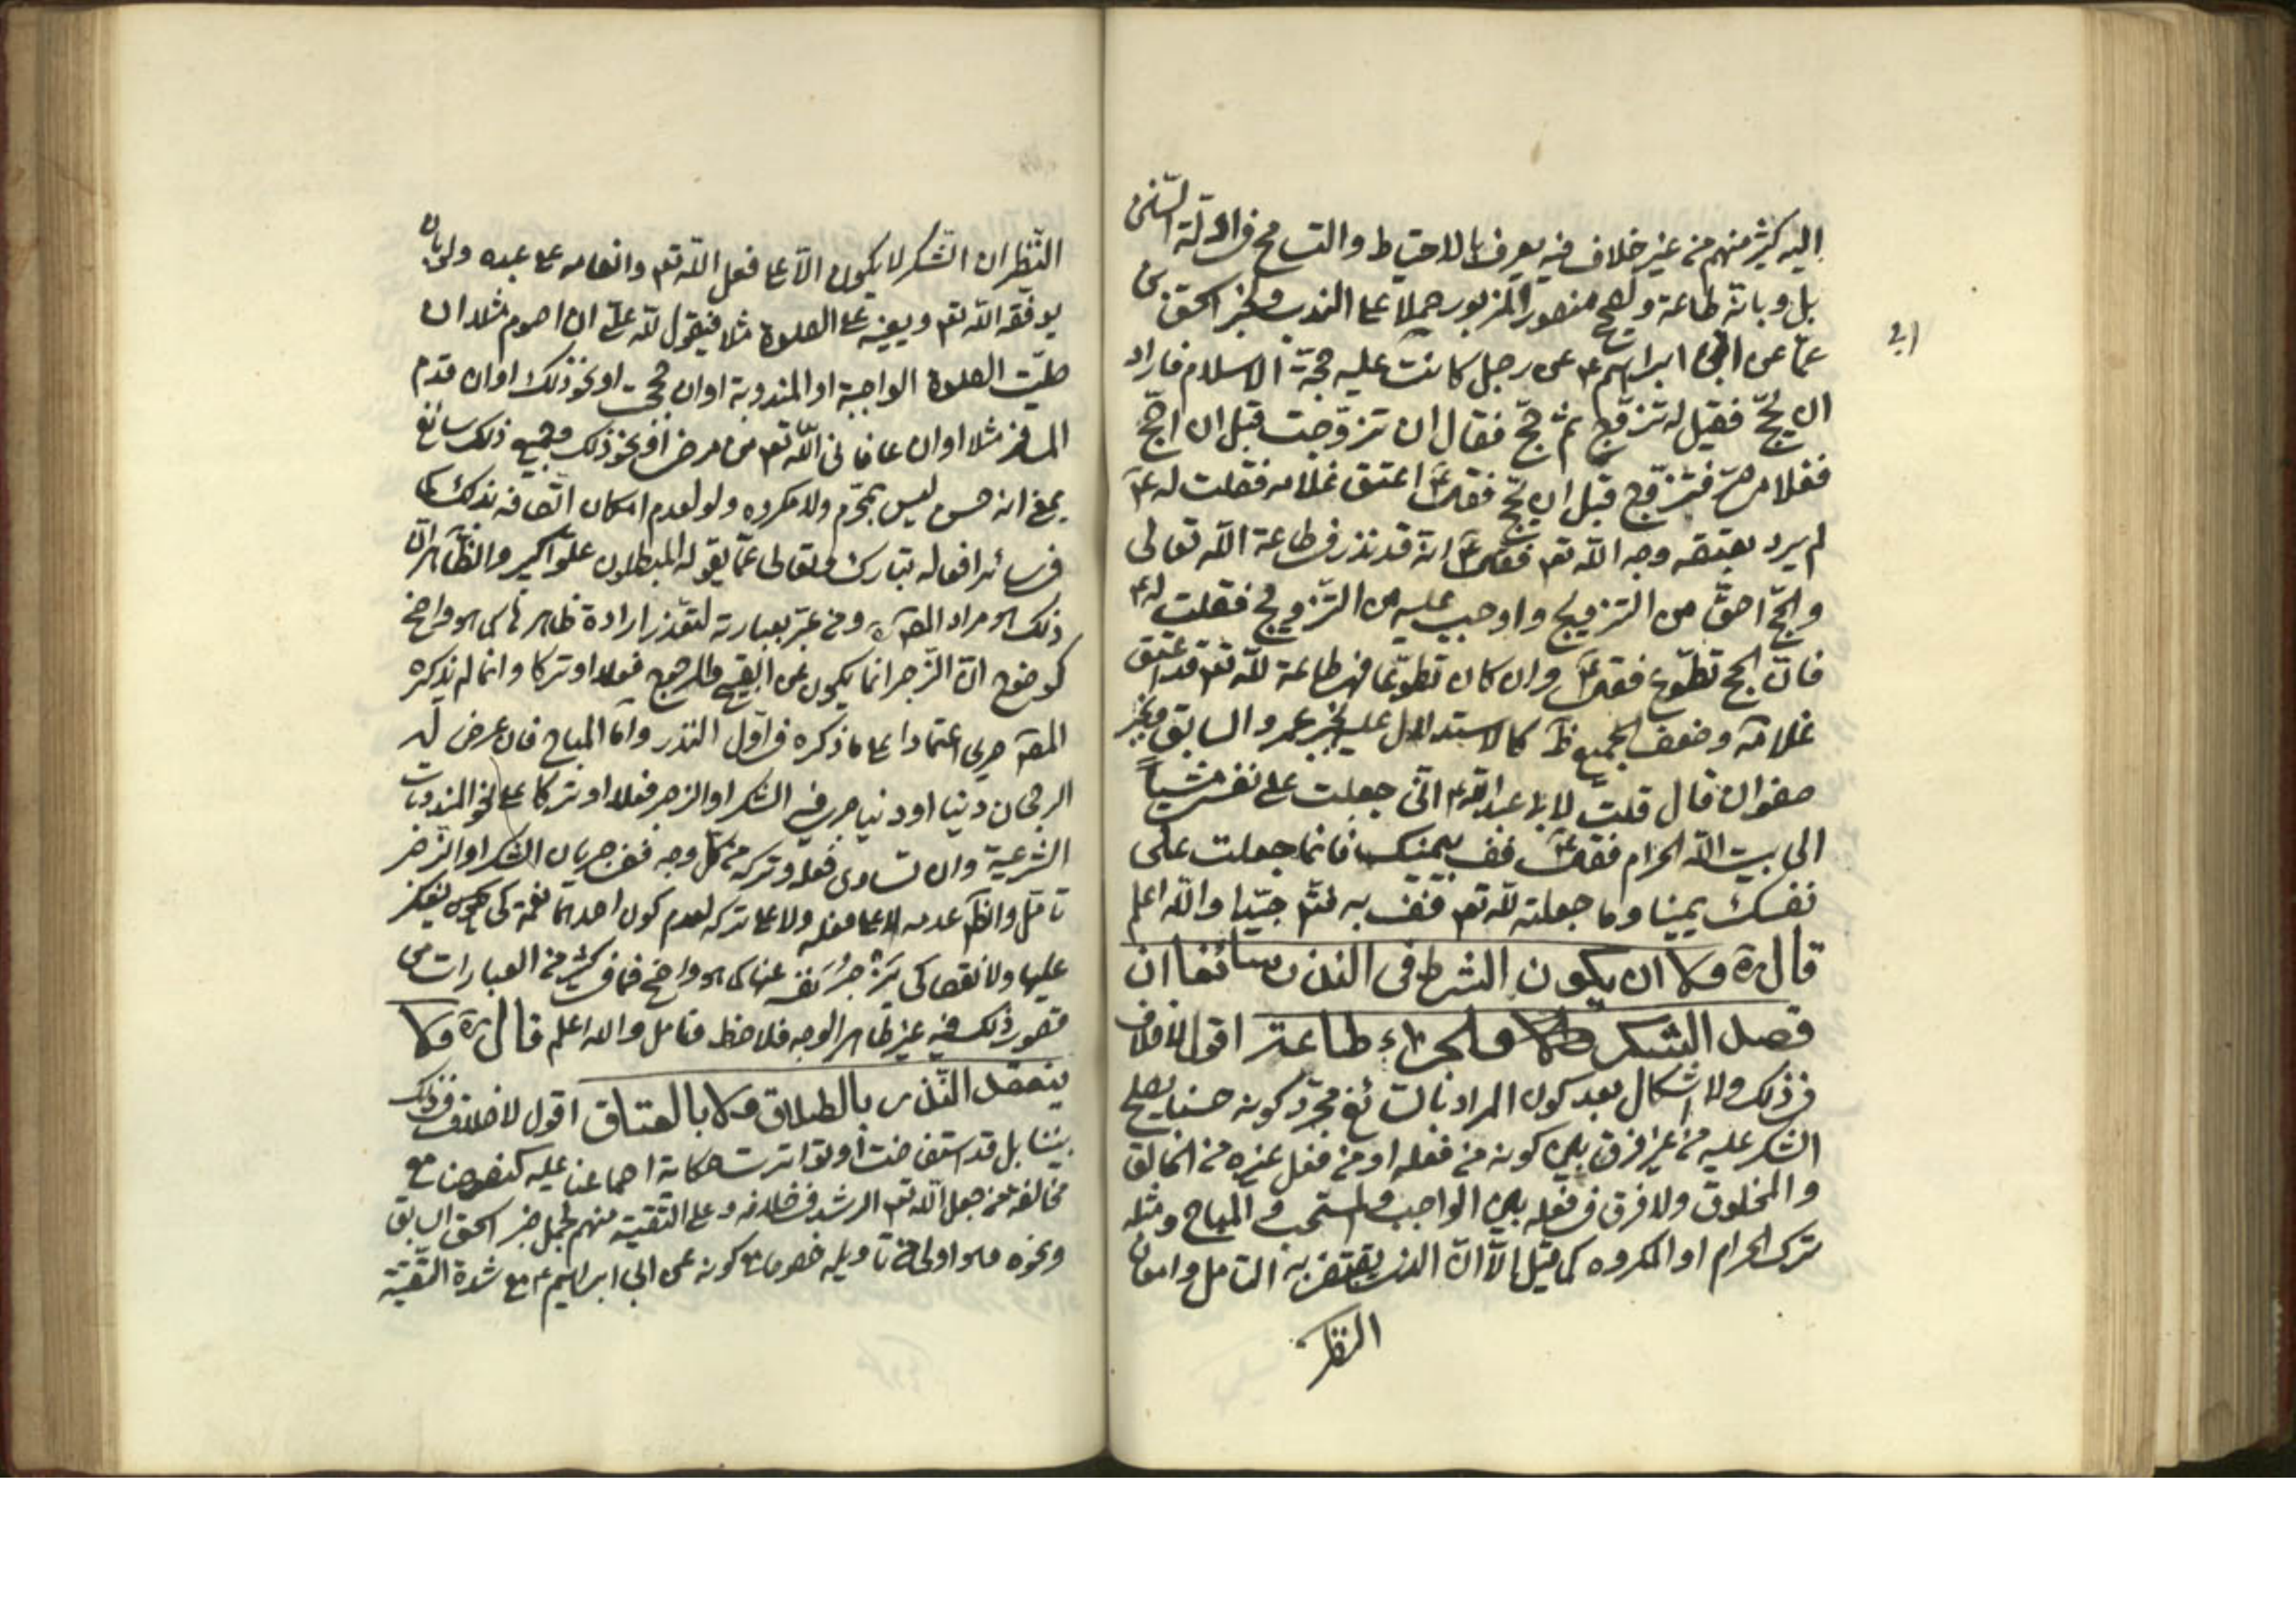 اليه كثير منهم من غير خلاف فيه يعرف بالاحتياط والتسامح في ادلة السنن
بل وبانه طاعة ومنصور المزبور حملا على الندب وبخبر اسحق بن
ابي
عمار عن ابي ابراهيم ع عن رجل كانت عليه حجة الاسلام فاراد
ان يحج فقيل له تزوج ثم حج فقال ان تزوجت قبل ان احج
فغلامي حر فتزوج قبل ان يحج فقال ع اعتق غلامه فقلت له ع
لم يرد بعتقه وجه الله تعم فقال ع انه قد نذر في طاعة الله تعالى
والحج احق من التزويج واوجب عليه من التزويج فقلت له ع
فان الحج تطوع فقال ع وان كان تطوعا فهي طاعة لله تعم قد اعتق
غلامه وضعف الجميع ظ كالاستدلال عليه بخبر عمرو السابق وبخبر
صفوان قال قلت لابي عبد الله ع اني جعلت على نفسي مشيا
الى بيت الله الحرام فقال ع كفر يمينك فانما جعلت على
نفسك يمينا وما جعلته لله تعم فف به فتم جيدا والله اعلم
قال ره ولا ان يكون الشرط في النذر سائغا ان
قصد الشكر والجزاء طاعة اقول لا خلاف
في ذلك ولا اشكال بعد كون المراد بالسائغ مجرد كونه حسنا يصلح
الشكر عليه من غير فرق بين كونه من فعله او من فعل غيره من الخالق
والمخلوق ولا فرق في فعله بين الواجب والمستحب والمباح ومثله
ترك الحرام او المكروه كما قيل الا ان الذي يقتضيه التامل وامعان
النظر
النظر ان الشكر لا يكون الا على فعل الله تعم وانعامه على عبده ولو بان
يوفقه الله تعم ويعينه على الصلوة مثلا فيقول لله علي ان اصوم مثلا ان
صليت الصلوة الواجبة او المندوبة او ان حججت او نحو ذلك او ان قدم
المسافر مثلا او ان عافاني الله تعم من مرض او نحو ذلك وجميع ذلك سائغ
بمعنى انه حسن ليس بمحرم ولا مكروه ولو لعدم امكان اتصافه بذلك كما
في سائر افعاله تبارك وتعالى عما يقوله المبطلون علوا كبيرا والظاهر ان
ذلك هو مراد المصنف ره ومن عبر بعبارته لتعذر ارادة ظاهرها كما هو واضح
كوضوح ان الزجر انما يكون عن القبيح والمرجوح فعلا او تركا وانما لم يذكره
المصنف صريحا اعتمادا على ما ذكره في اول النذر واما المباح فان عرض له
الرجحان دنيا او دينيا جرى فيه الشكر او الزجر فعلا او تركا على نحو المندوبات
الشرعية وان تساوى فعله وتركه من كل وجه ففي جريان الشكر او الزجر
تامل والظاهر عدمه لا على فعله ولا على تركه لعدم كون احدهما نعمة كي يشكر
عليها ولا نقصا كي يزجر نفسه عنه كما هو واضح فما في كثير من العبارات من
قصور ذلك فيه غير ظاهر الوجه فلاحظ وتامل والله اعلم قال ره ولا
ينعقد النذر بالطلاق ولا بالعتاق اقول لا خلاف في ذلك
بيننا بل قد استفاضت او تواترت حكاية اجماعنا عليه كنصوصنا مع
مخالفة من جعل الله تعم الرشد في خلافه وعلى التقية منهم يحمل خبر اسحق السابق
ونحوه وهو اولى من تاويله خصوصا مع كونه عن ابي ابراهيم ع مع شدة التقية